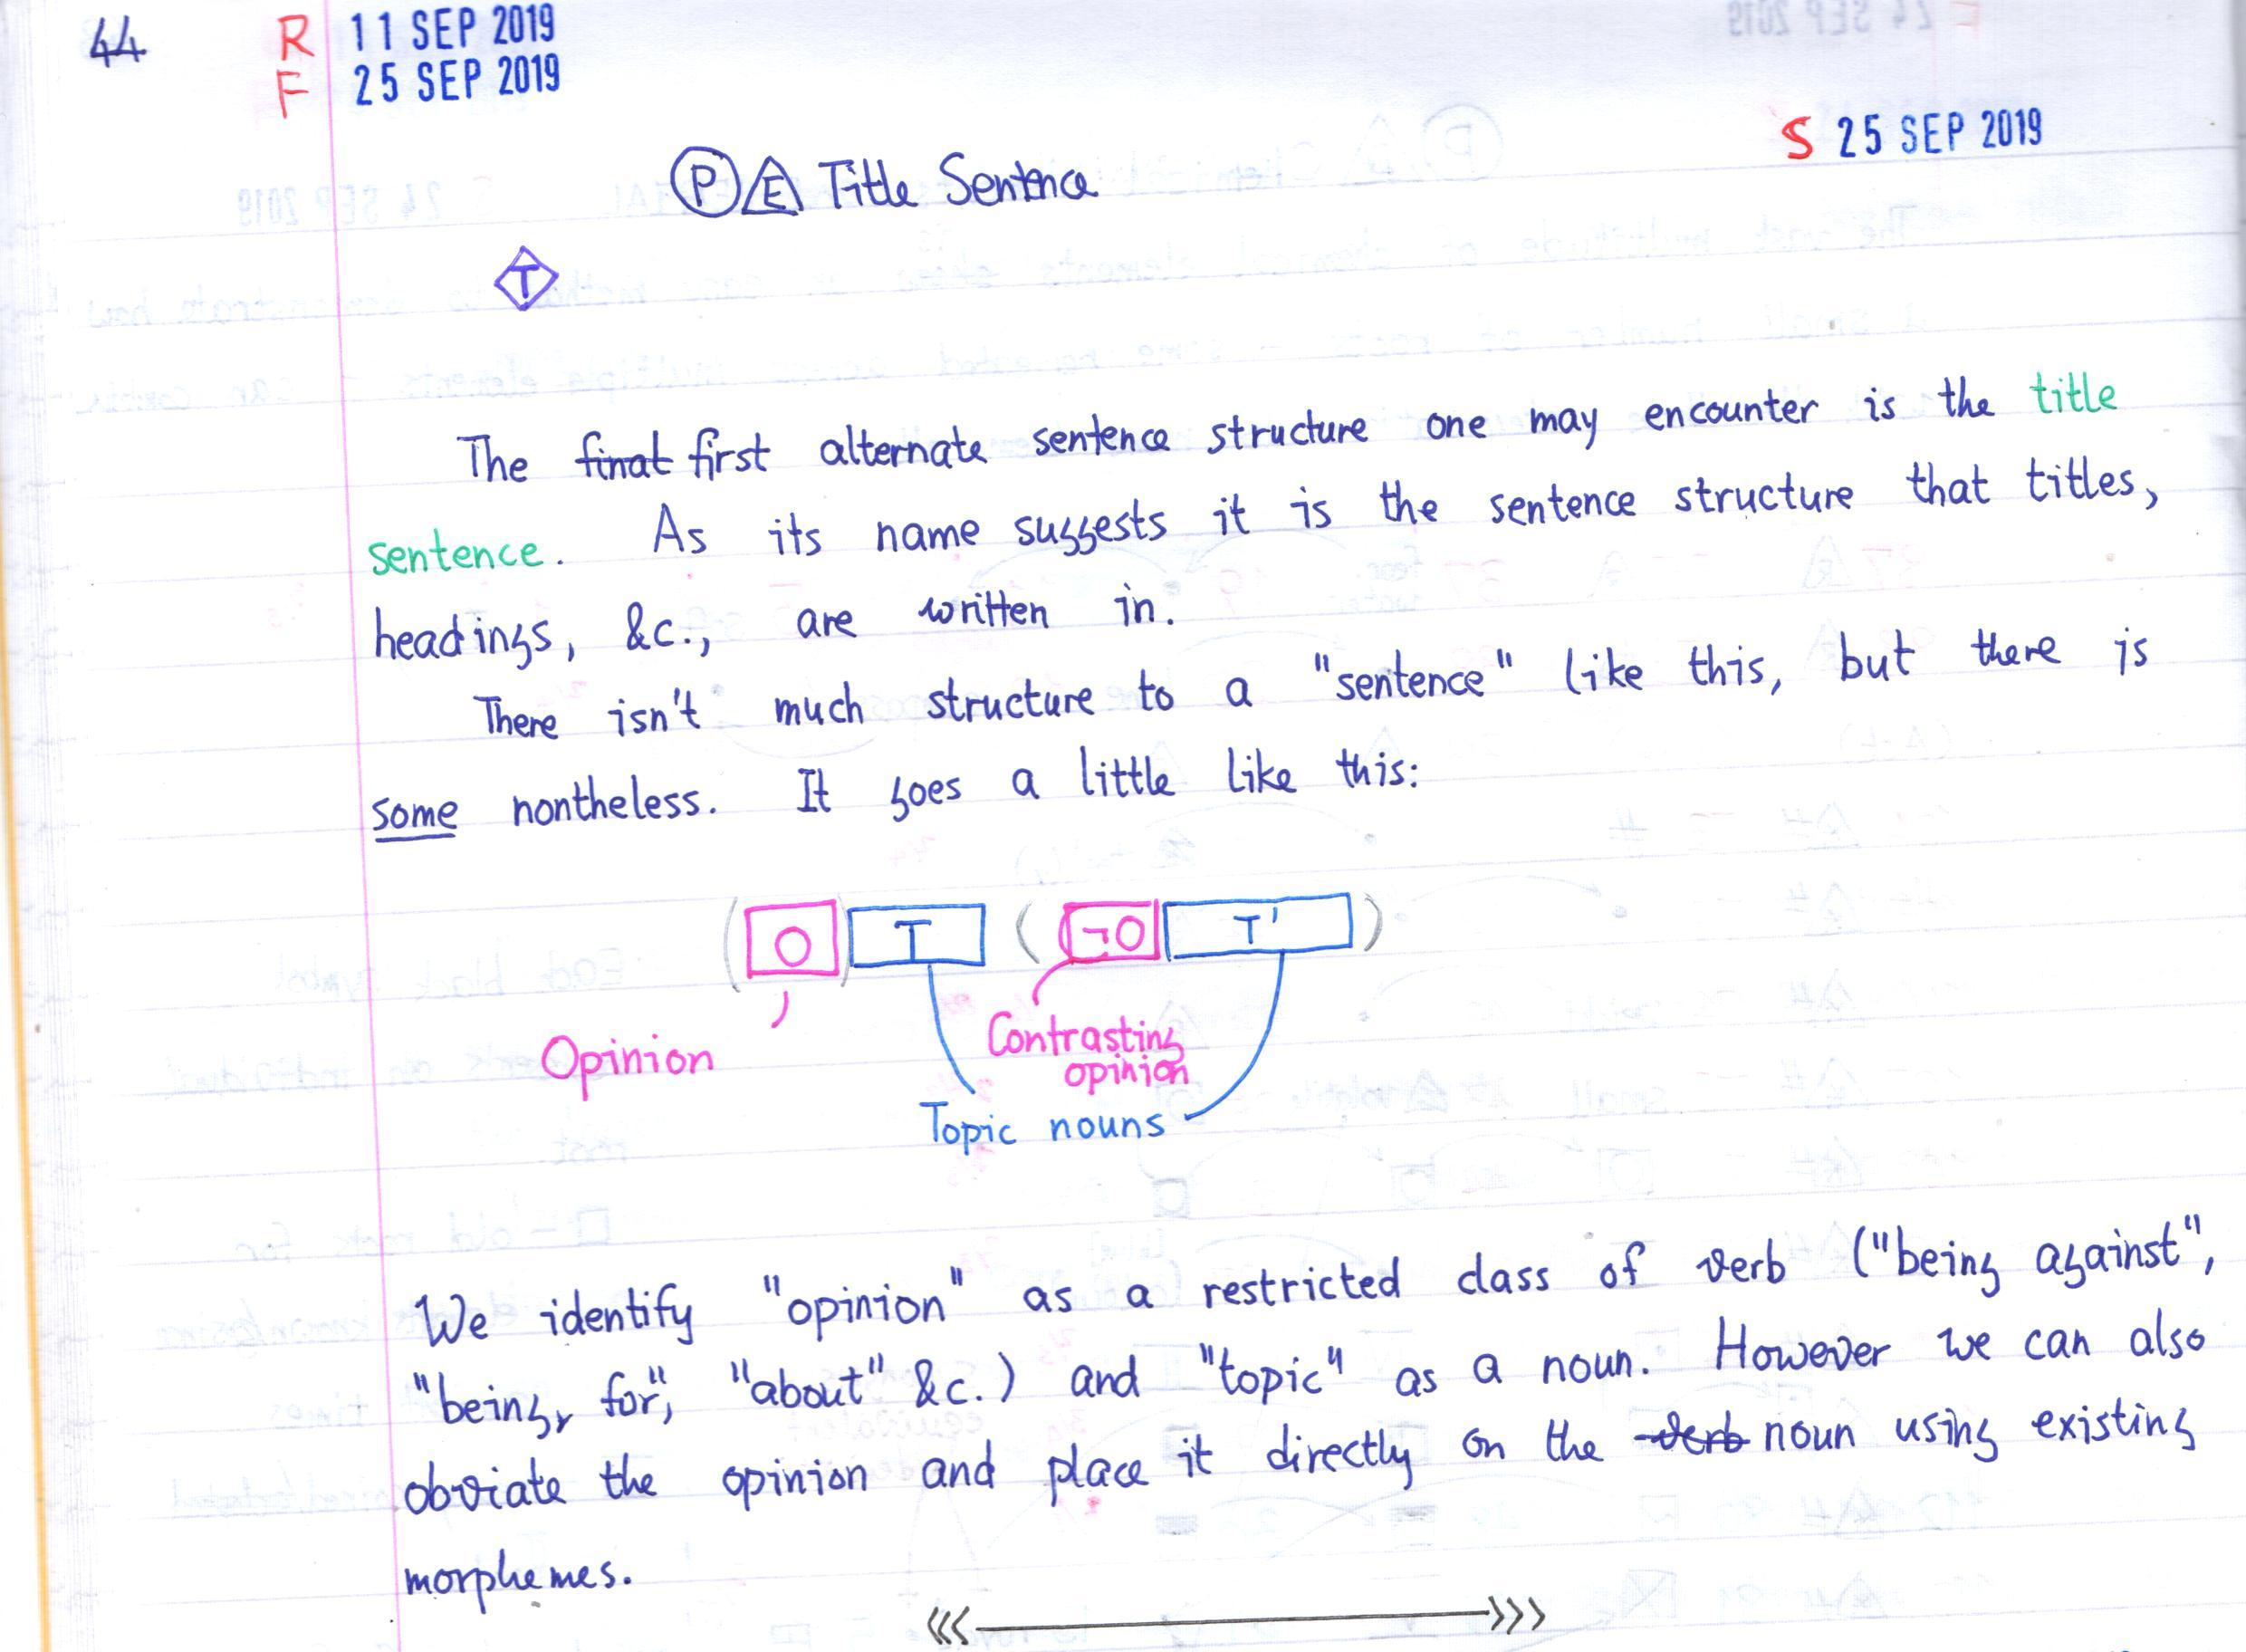 44
R 11 SEP 2019
F 25 SEP 2019
S 25 SEP 2019
P E Title Sentence
T
The final first alternate sentence structure one may encounter is the title
sentence. As its name suggests it is the sentence structure that titles,
headings, &c., are written in.
There isn't much structure to a "sentence" like this, but there is
some nontheless. It goes a little like this:
(O) T (¬O T')
Opinion
Contrasting
opinion
Topic nouns
We identify "opinion" as a restricted class of verb ("being against",
"being, for", "about" &c.) and "topic" as a noun. However we can also
obviate the opinion and place it directly on the verb noun using existing
morphemes.